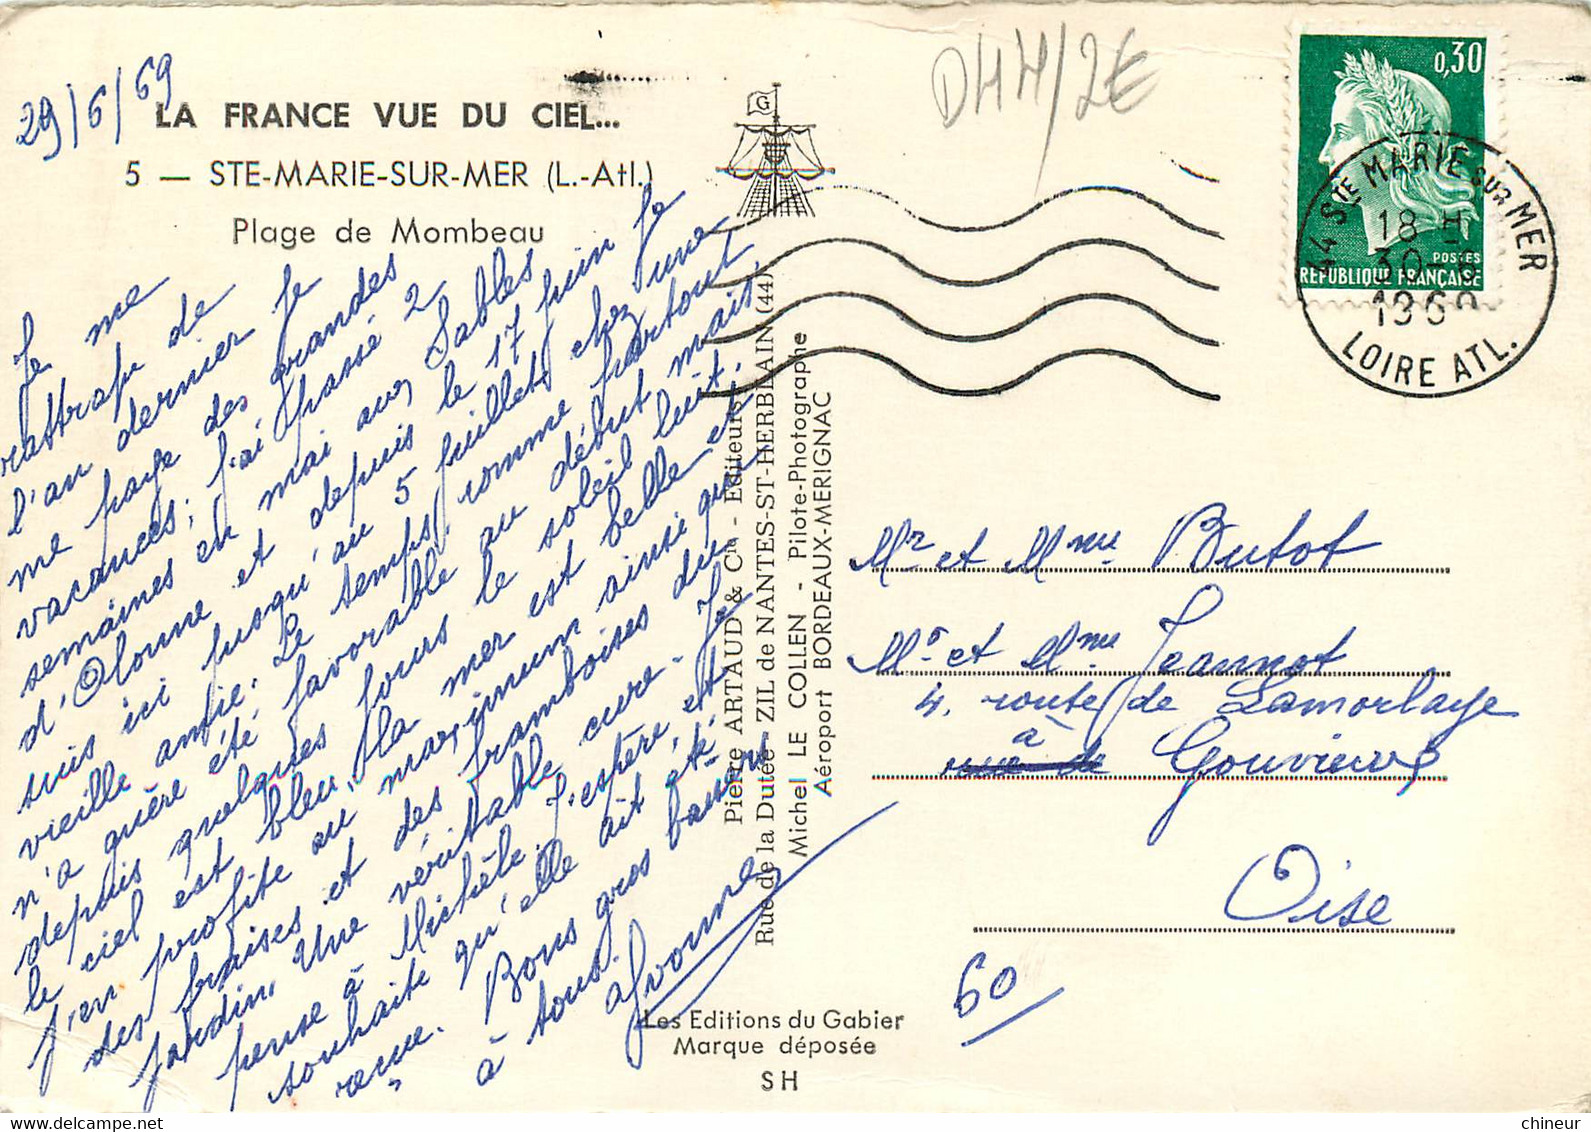 29/6/69
LA FRANCE VUE DU CIEL...
5 — STE-MARIE-SUR-MER (L.-Atl.)
Plage de Mombeau
Je me
rattrape de
l'an dernier je
me paye des grandes
vacances; j'ai passé 2
semaines en mai aux Sables
d'Olonne et depuis le 17 juin je
suis ici jusqu'au 5 juillet chez une
vieille amie. Le temps, comme partout
n'a guère été favorable au début mais,
depuis quelques jours le soleil luit,
le ciel est bleu, la mer est belle et
j'en profite au maximum ainsi que
des fraises et des framboises du
jardin. Une véritable cure. Je
pense à Michèle. J'espère et
souhaite qu'elle ait été
reçue. Bons gros baisers
à tous.
Yvonne
G
Pierre ARTAUD & Cie - Editeurs
Rue de la Dutée - ZIL de NANTES-ST-HERBLAIN (44)
Michel LE COLLEN - Pilote-Photographe
Aéroport BORDEAUX-MERIGNAC
Les Editions du Gabier
Marque déposée
SH
D44/2€
0,30
POSTES
REPUBLIQUE FRANÇAISE
44 STE MARIE SUR MER
18 H
30-6
1969
LOIRE ATL.
Mr et Mme Butot
Mr et Mme Jeannot
4, route de Lamorlaye
à Gouvieux
Oise
60
chineur